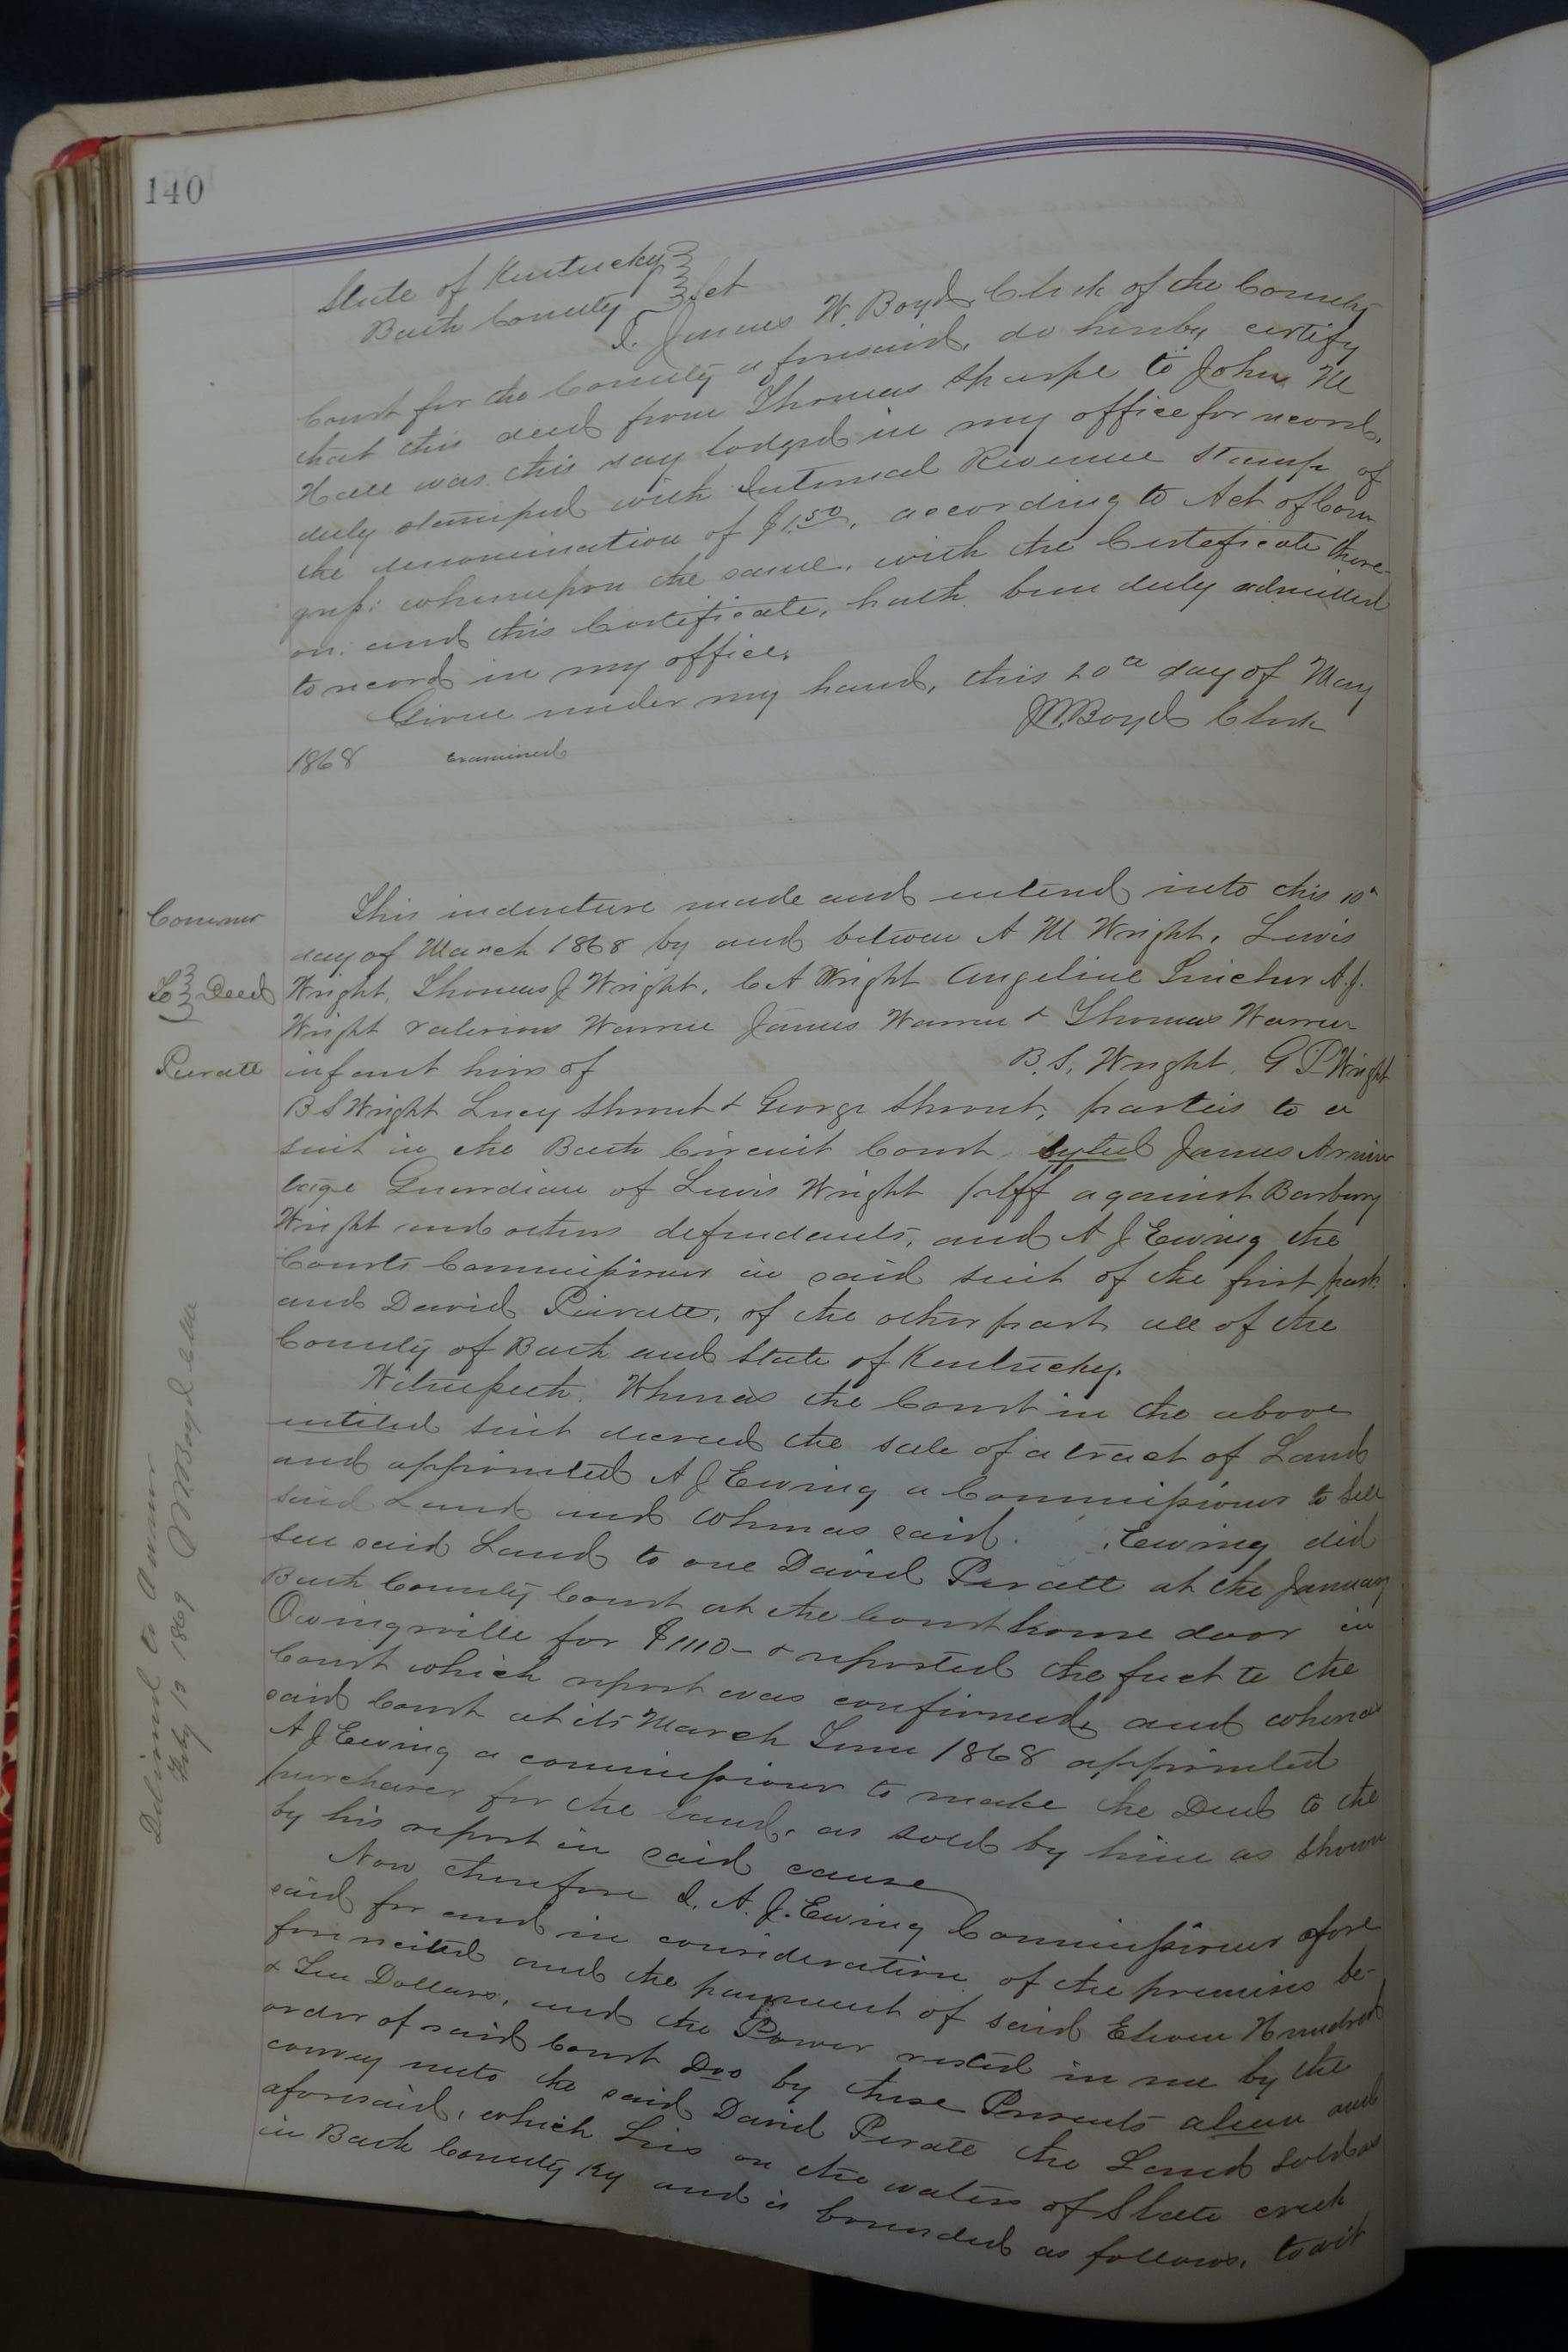 140
State of Kentucky
Bath County Sct
I. James W. Boyd, Clerk of the County
Court for the County aforesaid, do hereby certify
that this deed from Thomas Sharpe to John M
Hall was this day lodged in my office for record,
duly stamped with Internal Revenue Stamp of
the denomination of $1.50, according to Act of Con
gress: whereupon the same, with the Certificate there-
on: and this Certificate, hath been duly admitted
to record in my office.
Given under my hand, this 20th day of May
1868 examined JW. Boyd Clerk
Commr
To Deed
Peratt
This indenture made and entered into this 10th
day of March 1868 by and between A M Wright, Lewis
Wright, Thomas J Wright, C A Wright Angeline A. J.
Wright Warren James Warren & Thomas Warren
infant heirs of B. S. Wright, G P Wright
B S Wright Lucy Shrout & George Shrout, parties to a
suit in the Bath Circuit Court, styled James Armin
tage Guardian of Lewis Wright plff against Barbary
Wright and others defendants, and A J Ewing the
Courts Commissioner in said suit of the first part
and David Peratt, of the other part all of the
County of Bath and State of Kentucky.
Witnesseth. Whereas the Court in the above
entitled suit decreed the sale of a tract of Land
and appointed A J Ewing a Commissioner to sell
said Land and Whereas said Ewing did
sell said Land to one David Peratt at the January
Bath County Court at the Court house door in
Owingsville for $1110- & reported the fact to the
Court which report was confirmed, and whereas
said Court at its March Term 1868 appointed
A J Ewing a commissioner to make the Deed to the
purchaser for the land, as sold by him as shown
by his report in said cause
Now therefore I. A. J. Ewing Commissioner afore
said for and in consideration of the premises be-
fore recited and the payment of said Eleven Hundred
& Ten Dollars, and the Power vested in me by the
order of said Court Doo by these Presents alien and
convey unto the said David Peratt the Land sold as
aforesaid, which Lies on the waters of Slate creek
in Bath County Ky and is bounded as follows, to wit
Delivered to Owner
Feby 13 1869 JW Boyd Clk